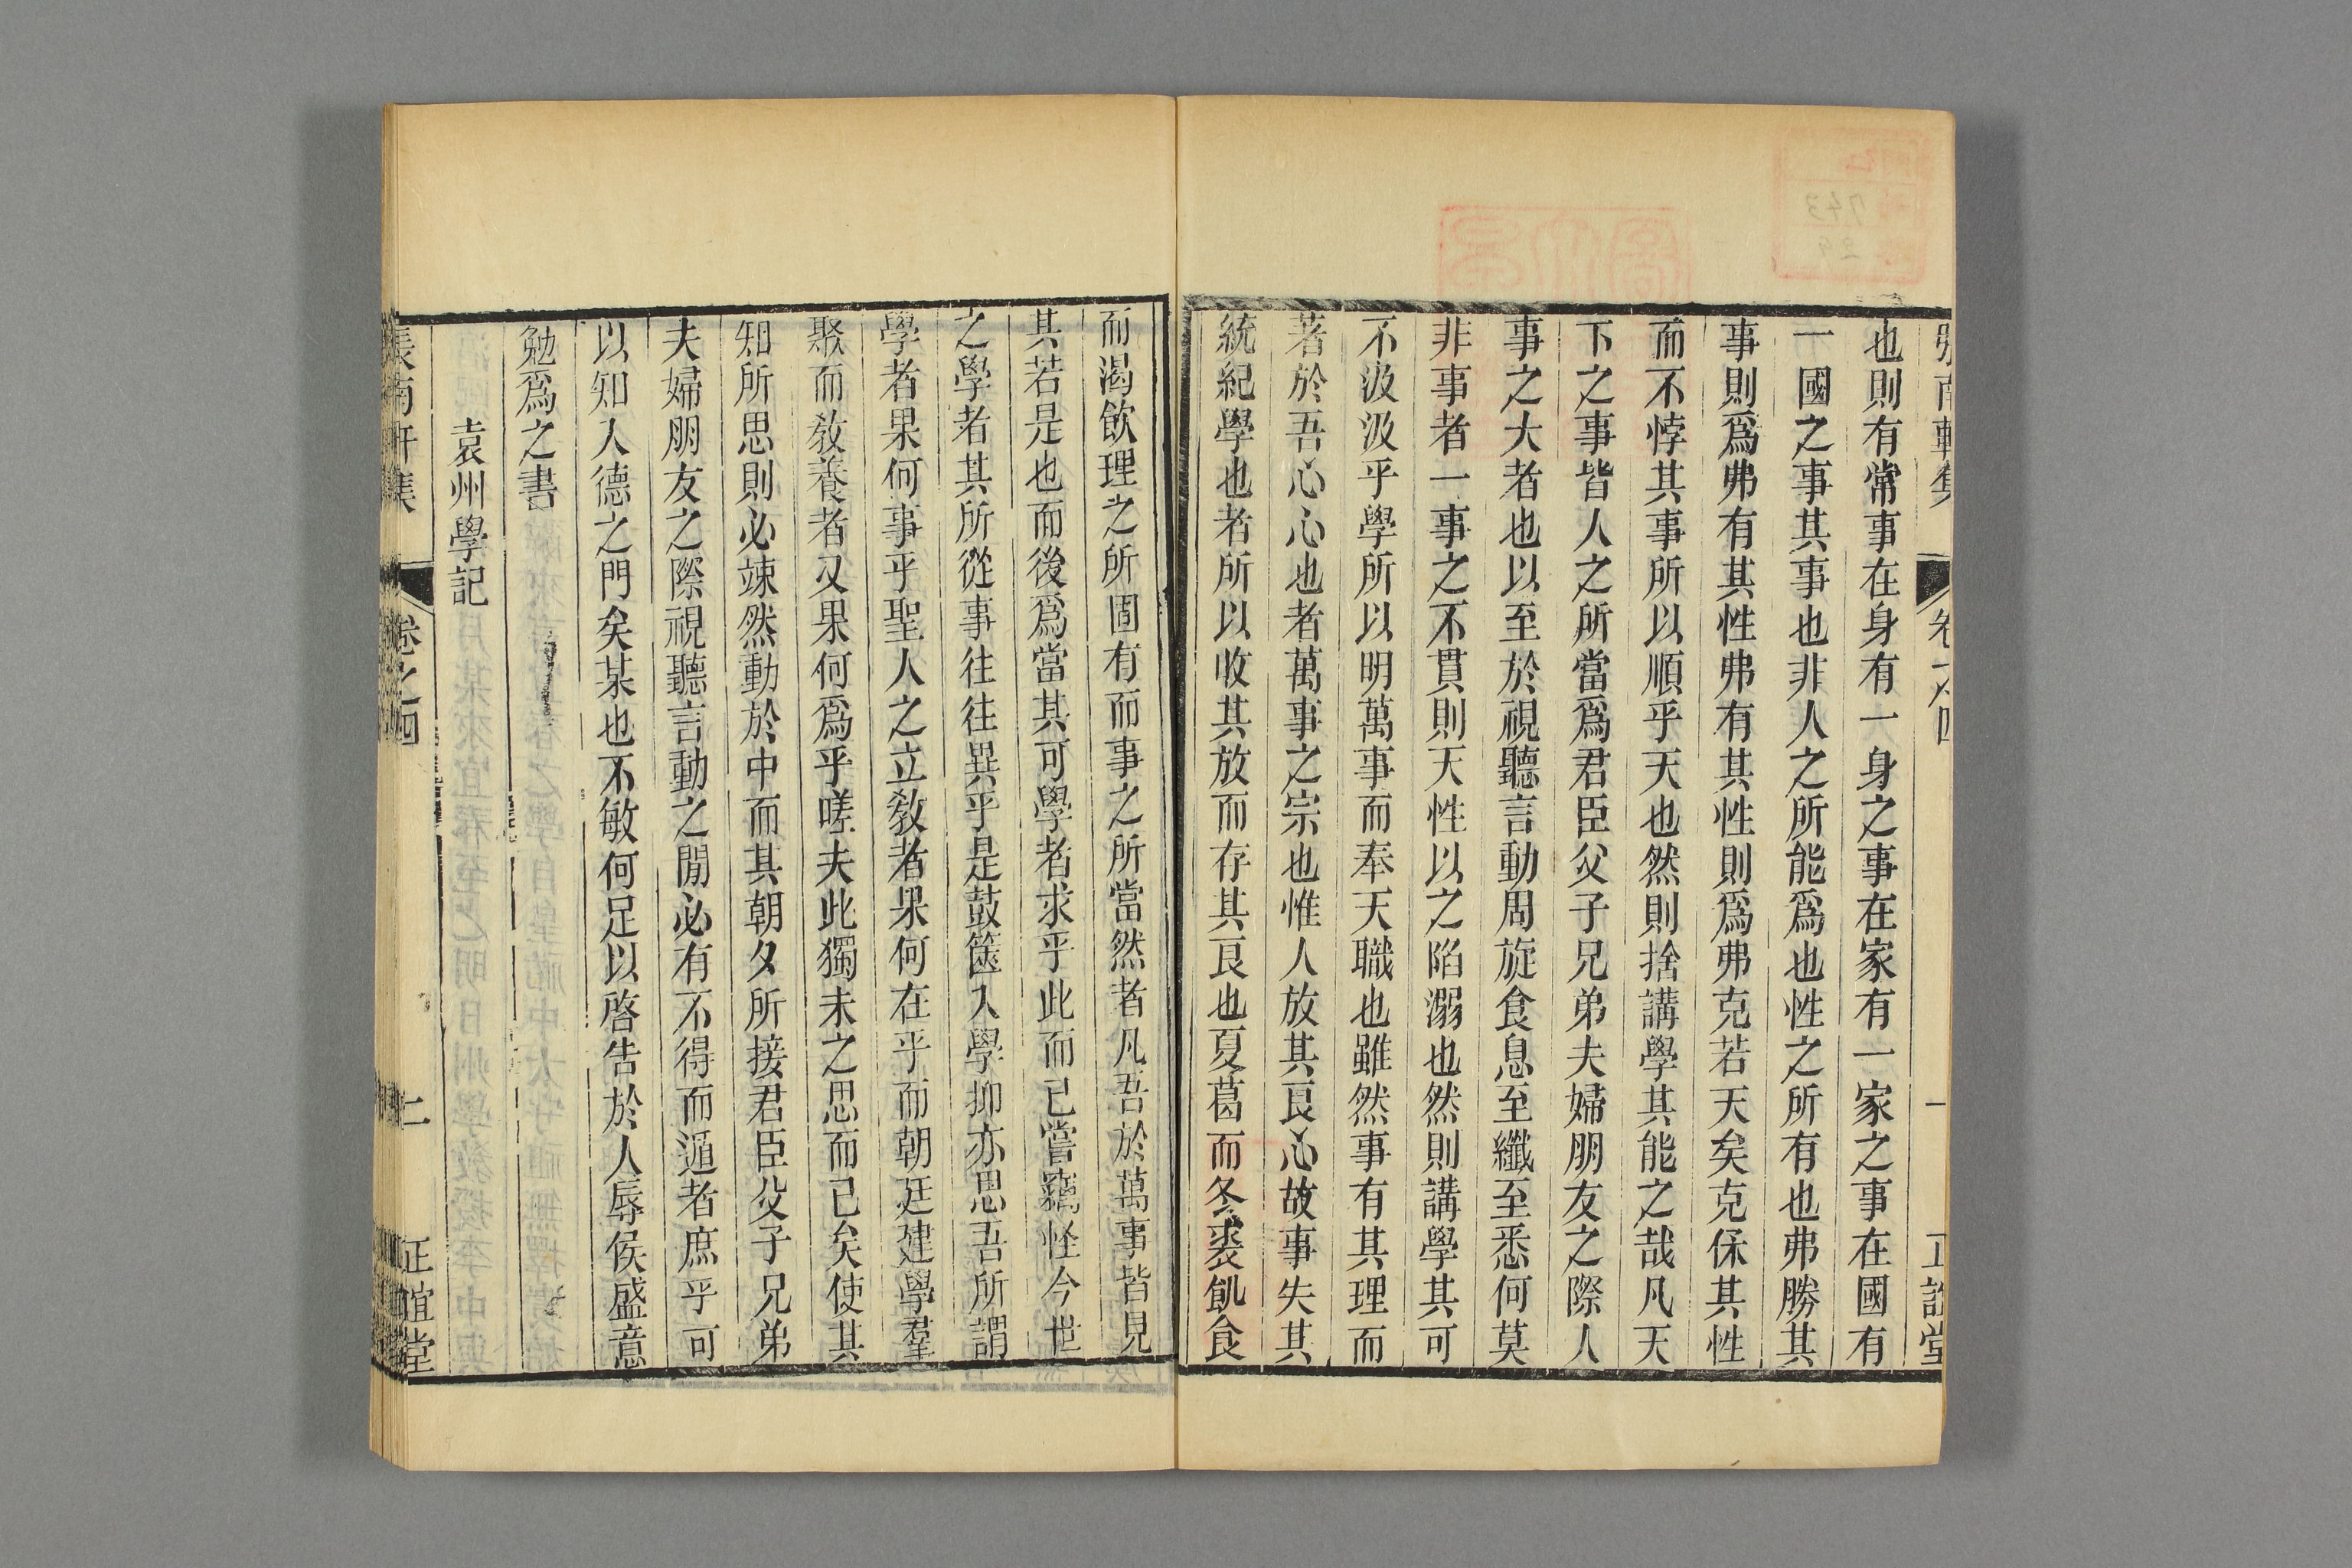 也則有常事在身有一身之事在家有一家之事在國有
一國之事其事也非人之所能爲也性之所有也弗勝其
事則爲弗有其性弗有其性則爲弗克若天矣克保其性
而不悖其事所以順乎天也然則捨講學其能之哉凡天
下之事皆人之所當爲君臣父子兄弟夫婦朋友之際人
事之大者也以至於視聽言動周旋食息至纖至悉何莫
非事者一事之不貫則天性以之陷溺也然則講學其可
不汲汲乎學所以明萬事而奉天職也雖然事有其理而
著於吾心心也者萬事之宗也惟人放其良心故事失其
統紀學也者所以收其放而存其良也夏葛而冬裘飢食
而渴飲理之所固有而事之所當然者凡吾於萬事皆見
其若是也而後爲當其可學者求乎此而已嘗竊怪今世
之學者其所從事往往異乎是鼓篋入學抑亦思吾所謂
學者果何事乎聖人之立敎者果何在乎而朝廷建學羣
聚而敎養者又果何爲乎嗟夫此獨未之思而已矣使其
知所思則必竦然動於中而其朝夕所接君臣父子兄弟
夫婦朋友之際視聽言動之間必有不得而遁者庶乎可
以知入德之門矣某也不敏何足以啓告於人辱侯盛意
勉爲之書
袁州學記
張南軒集
卷之四
正誼堂